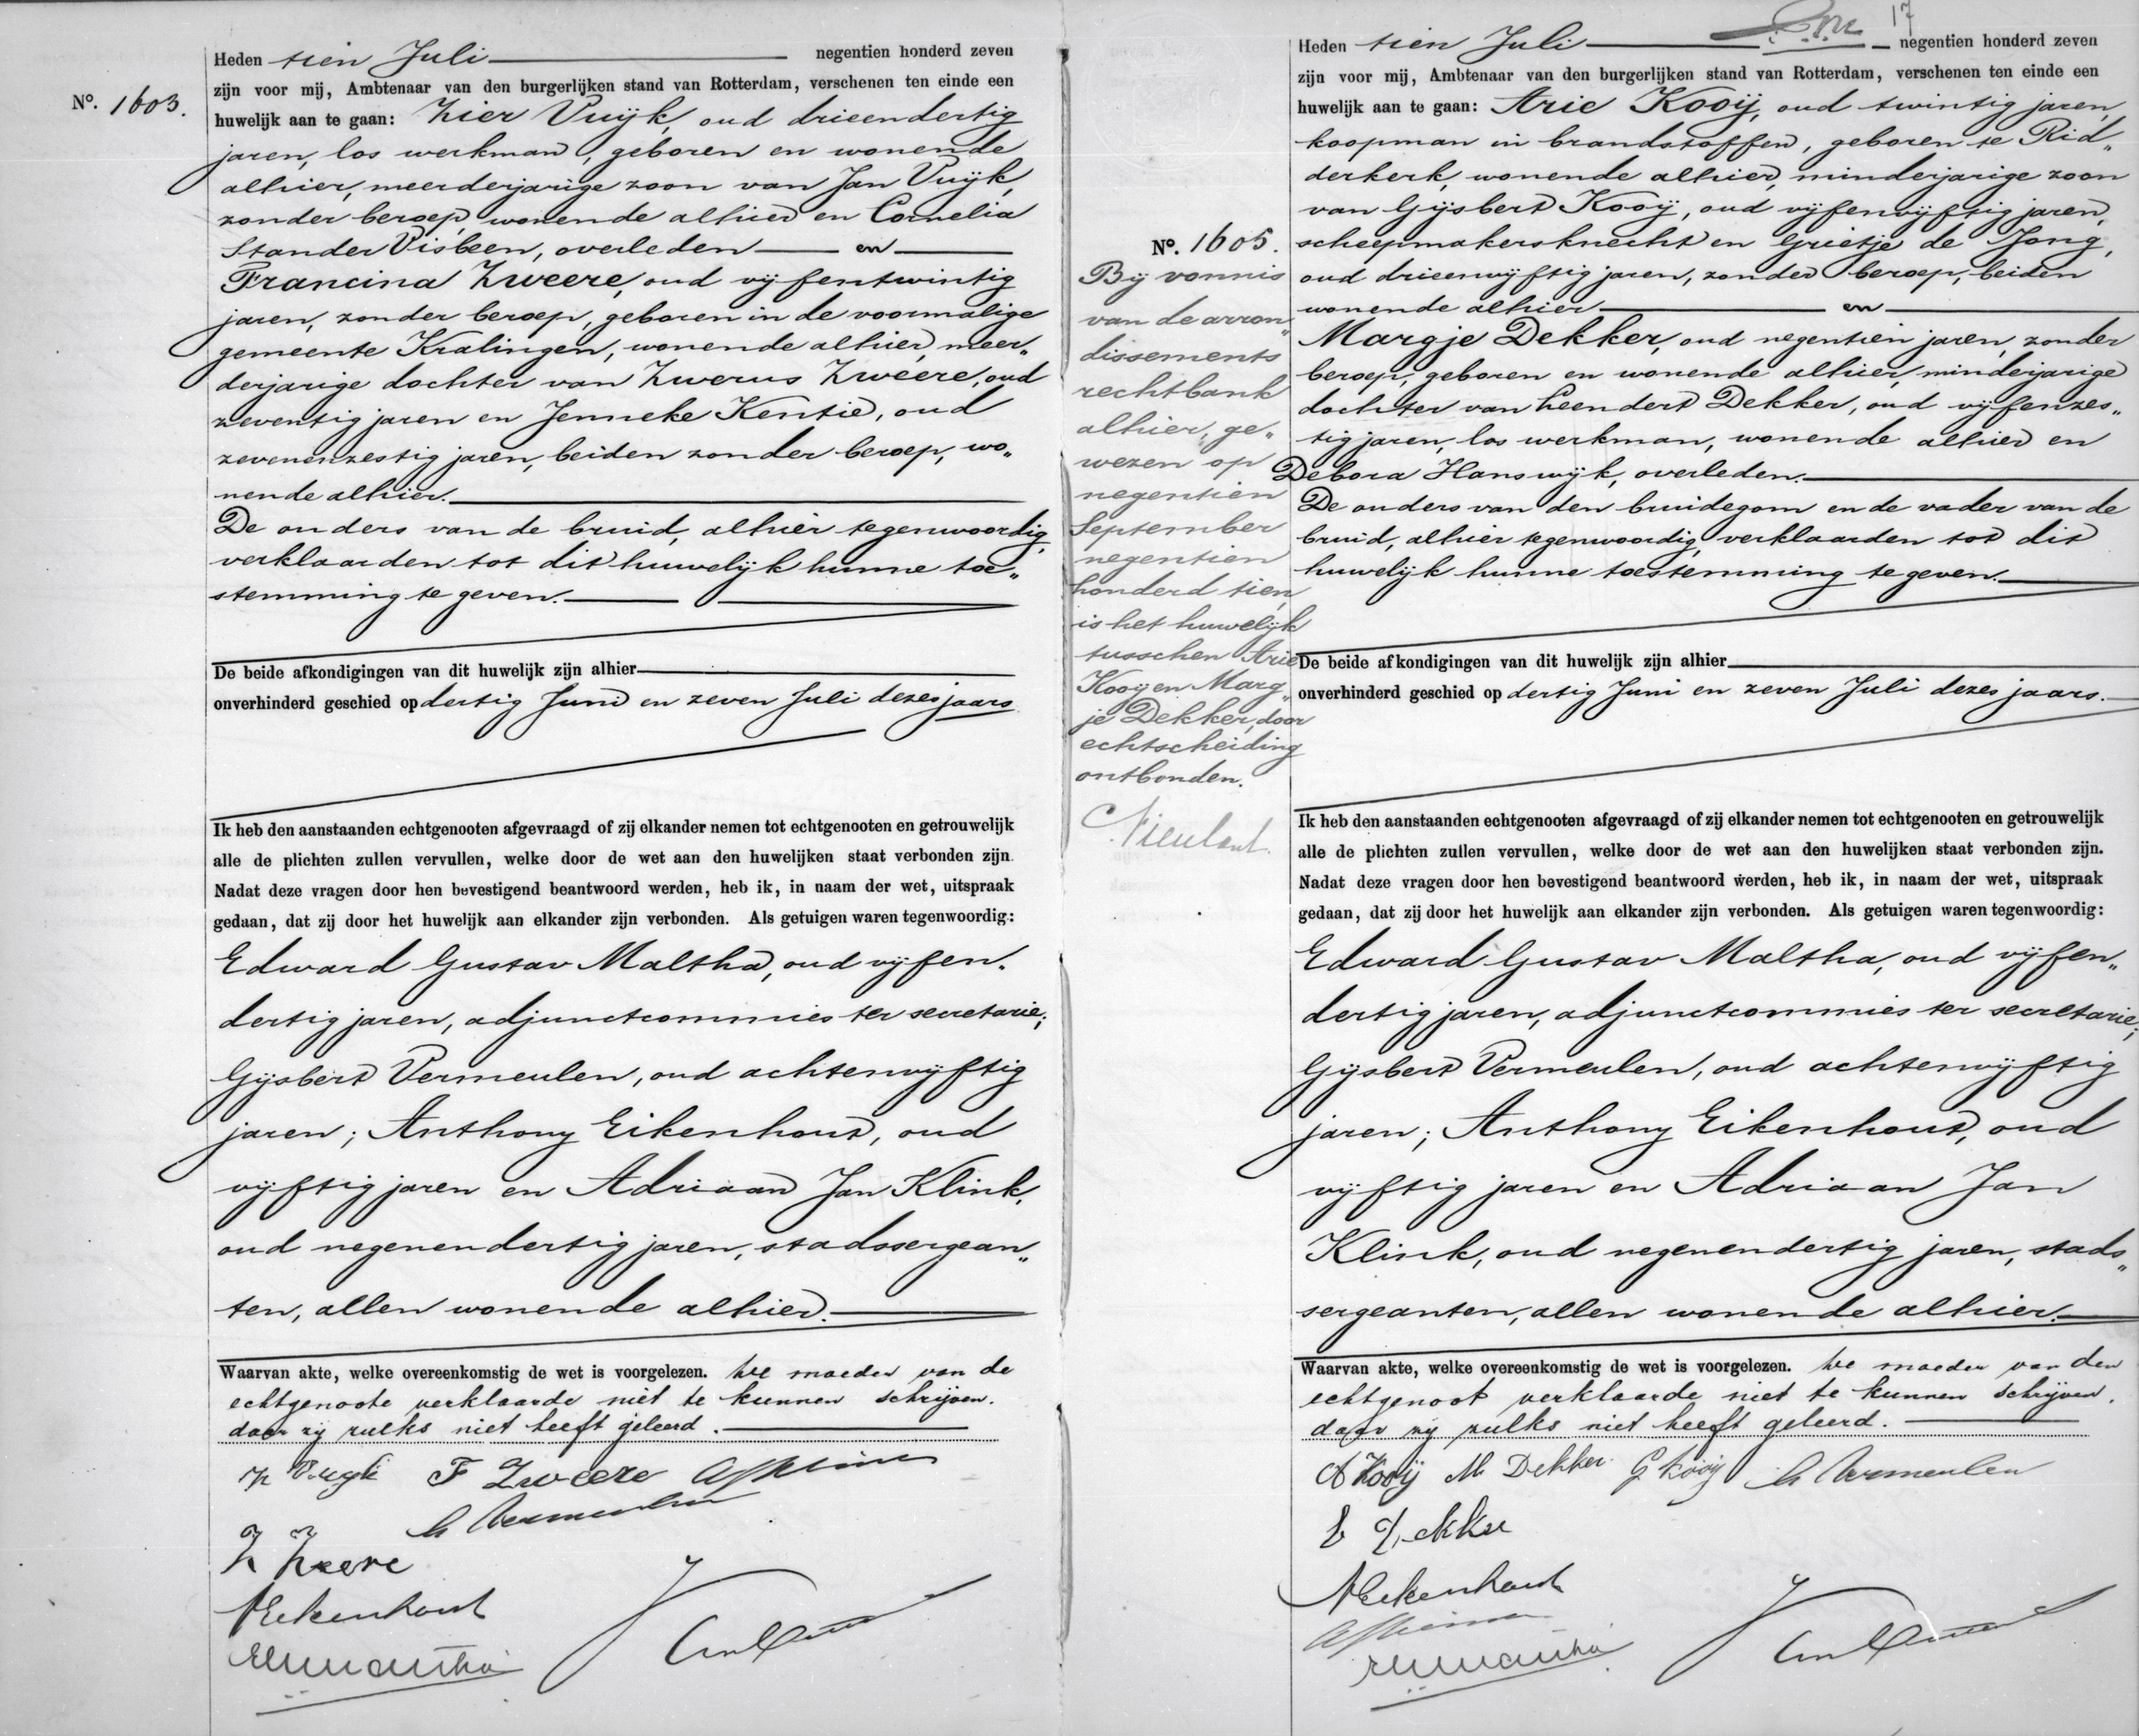 Heden tien Juli negentien honderd zeven
zijn voor mij, Ambtenaar van den burgerlijken stand van Rotterdam, verschenen ten einde een
No. 1603.
huwelijk aan te gaan: Zier Vuijk, oud drieendertig
jaren, los werkman, geboren en wonende
alhier, meerderjarige zoon van Jan Vuijk,
zonder beroep, wonende alhier en Cornelia
Stander Visbeen, overleden en
Francina Zweere, oud vijfentwintig
jaren, zonder beroep, geboren in de voormalige
gemeente Kralingen, wonende alhier, meer„
derjarige dochter van Zwerus Zweere, oud
zeventig jaren en Jenneke Kentie, oud
zevenenzestig jaren, beiden zonder beroep, wo„
nende alhier.
De ouders van de bruid, alhier tegenwoordig,
verklaarden tot dit huwelijk hunne toe„
stemming te geven.
De beide afkondigingen van dit huwelijk zijn alhier
onverhinderd geschied op dertig Juni en zeven Juli dezes jaars
Ik heb den aanstaanden echtgenooten afgevraagd of zij elkander nemen tot echtgenooten en getrouwelijk
alle de plichten zullen vervullen, welke door de wet aan den huwelijken staat verbonden zijn.
Nadat deze vragen door hen bevestigend beantwoord werden, heb ik, in naam der wet, uitspraak
gedaan, dat zij door het huwelijk aan elkander zijn verbonden. Als getuigen waren tegenwoordig:
Edward Gustav Maltha, oud vijfen„
dertig jaren, adjunctcommies ter secretarie;
Gijsbert Vermeulen, oud achtenvijftig
jaren; Anthony Eikenhout, oud
vijftig jaren en Adriaan Jan Klink,
oud negenendertig jaren, stadssergean„
ten, allen wonende alhier.
Waarvan akte, welke overeenkomstig de wet is voorgelezen. De moeder van de
echtgenoote verklaarde niet te kunnen schrijven.
daar zij zulks niet heeft geleerd.
Z Vuijk F Zweere AJ Klink
G Vermeulen
Z Zweere
AEikenhout
EGMaltha
17
Heden tien Juli negentien honderd zeven
zijn voor mij, Ambtenaar van den burgerlijken stand van Rotterdam, verschenen ten einde een
huwelijk aan te gaan: Arie Kooij, oud twintig jaren,
koopman in brandstoffen, geboren te Rid„
derkerk, wonende alhier, minderjarige zoon
van Gijsbert Kooij, oud vijfenvijftig jaren,
No. 1605.
scheepmakersknecht en Grietje de Jong,
oud drieenvijftig jaren, zonder beroep, beiden
wonende alhier en
Margje Dekker, oud negentien jaren, zonder
beroep, geboren en wonende alhier, minderjarige
dochter van Leendert Dekker, oud vijfenzes„
tig jaren, los werkman, wonende alhier en
Debora Hanswijk, overleden.
De ouders van den bruidegom en de vader van de
bruid, alhier tegenwoordig, verklaarden tot dit
huwelijk hunne toestemming te geven.
Bij vonnis
van de arron„
dissements
rechtbank
alhier, ge„
wezen op
negentien
September
negentien
honderd tien,
is het huwelijk
tusschen Arie
Kooij en Marg„
je Dekker, door
echtscheiding
ontbonden.
Nieulant
De beide afkondigingen van dit huwelijk zijn alhier
onverhinderd geschied op dertig Juni en zeven Juli dezes jaars.
Ik heb den aanstaanden echtgenooten afgevraagd of zij elkander nemen tot echtgenooten en getrouwelijk
alle de plichten zullen vervullen, welke door de wet aan den huwelijken staat verbonden zijn.
Nadat deze vragen door hen bevestigend beantwoord werden, heb ik, in naam der wet, uitspraak
gedaan, dat zij door het huwelijk aan elkander zijn verbonden. Als getuigen waren tegenwoordig:
Edward Gustav Maltha, oud vijfen„
dertig jaren, adjunctcommies ter secretarie;
Gijsbert Vermeulen, oud achtenvijftig
jaren; Anthony Eikenhout, oud
vijftig jaren en Adriaan Jan
Klink, oud negenendertig jaren, stads„
sergeanten, allen wonende alhier.
Waarvan akte, welke overeenkomstig de wet is voorgelezen. De moeder van den
echtgenoot verklaarde niet te kunnen schrijven.
daar zij zulks niet heeft geleerd.
A Kooij M Dekker G Kooij G Vermeulen
L Dekker
AEikenhout
AJ Klink
EGMaltha